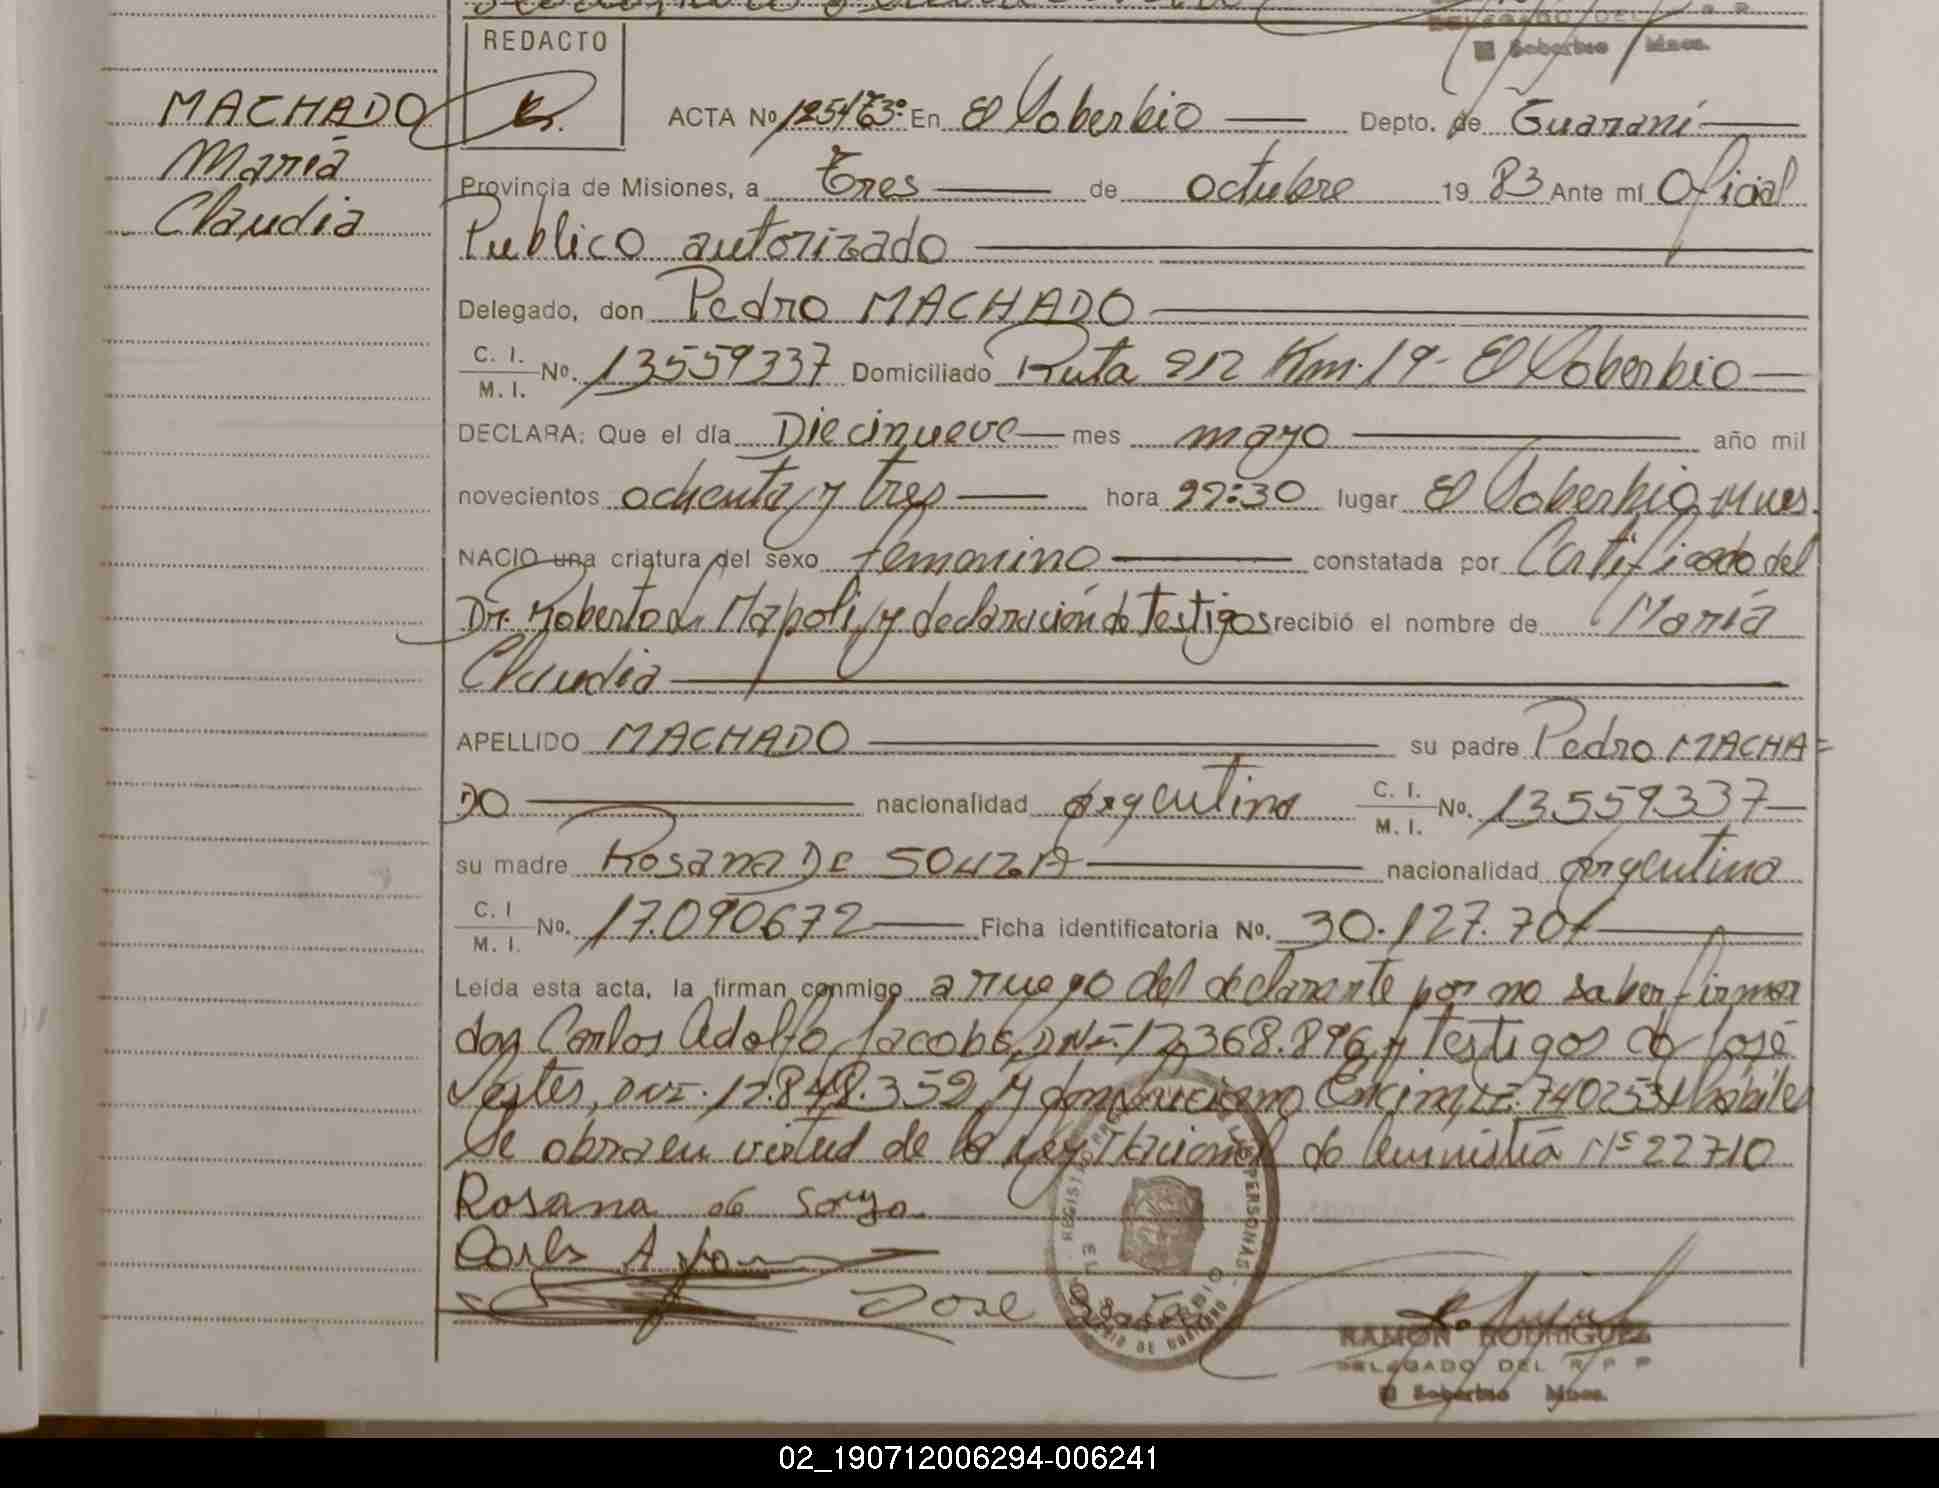 REDACTO
MACHADO
María
Claudia
ACTA Nº 1254/T3º En El Soberbio Depto. de Guaraní
Provincia de Misiones, a Tres de octubre 19 83 Ante mí Oficial
Publico autorizado
Delegado, don Pedro MACHADO
C. I.
M. I. Nº. 13559337 Domiciliado Ruta 212 Km. 19- El Soberbio
DECLARA: Que el día Diecinueve mes mayo año mil
novecientos ochenta y tres hora 22:30 lugar El Soberbio, Mnes.
NACIO una criatura del sexo femenino constatada por Certificado del
Dr. Roberto di Napoli, y declaración de Testigos recibió el nombre de María
Claudia
APELLIDO MACHADO su padre Pedro MACHA=
DO nacionalidad argentina C. I.
M. I. Nº. 13.559.337
su madre Rosana DE SOUZA nacionalidad argentina
C. I
M. I. Nº. 17.090672 Ficha identificatoria Nº. 30.127.701
Leída esta acta, la firman conmigo a ruego del declarante por no saber firmar
don Carlos Adolfo Jacobs, DNI- 17.368.896, y Testigos de José
DNI-.12.848.352 y hábiles
Se obra en virtud de la Ley Nacional de Amnistía Nº 22710
Rosana de Souza
Carlos A
Jose
RAMON RODRIGUEZ
DELEGADO DEL R P P
El Soberbio Mnes.
02_190712006294-006241